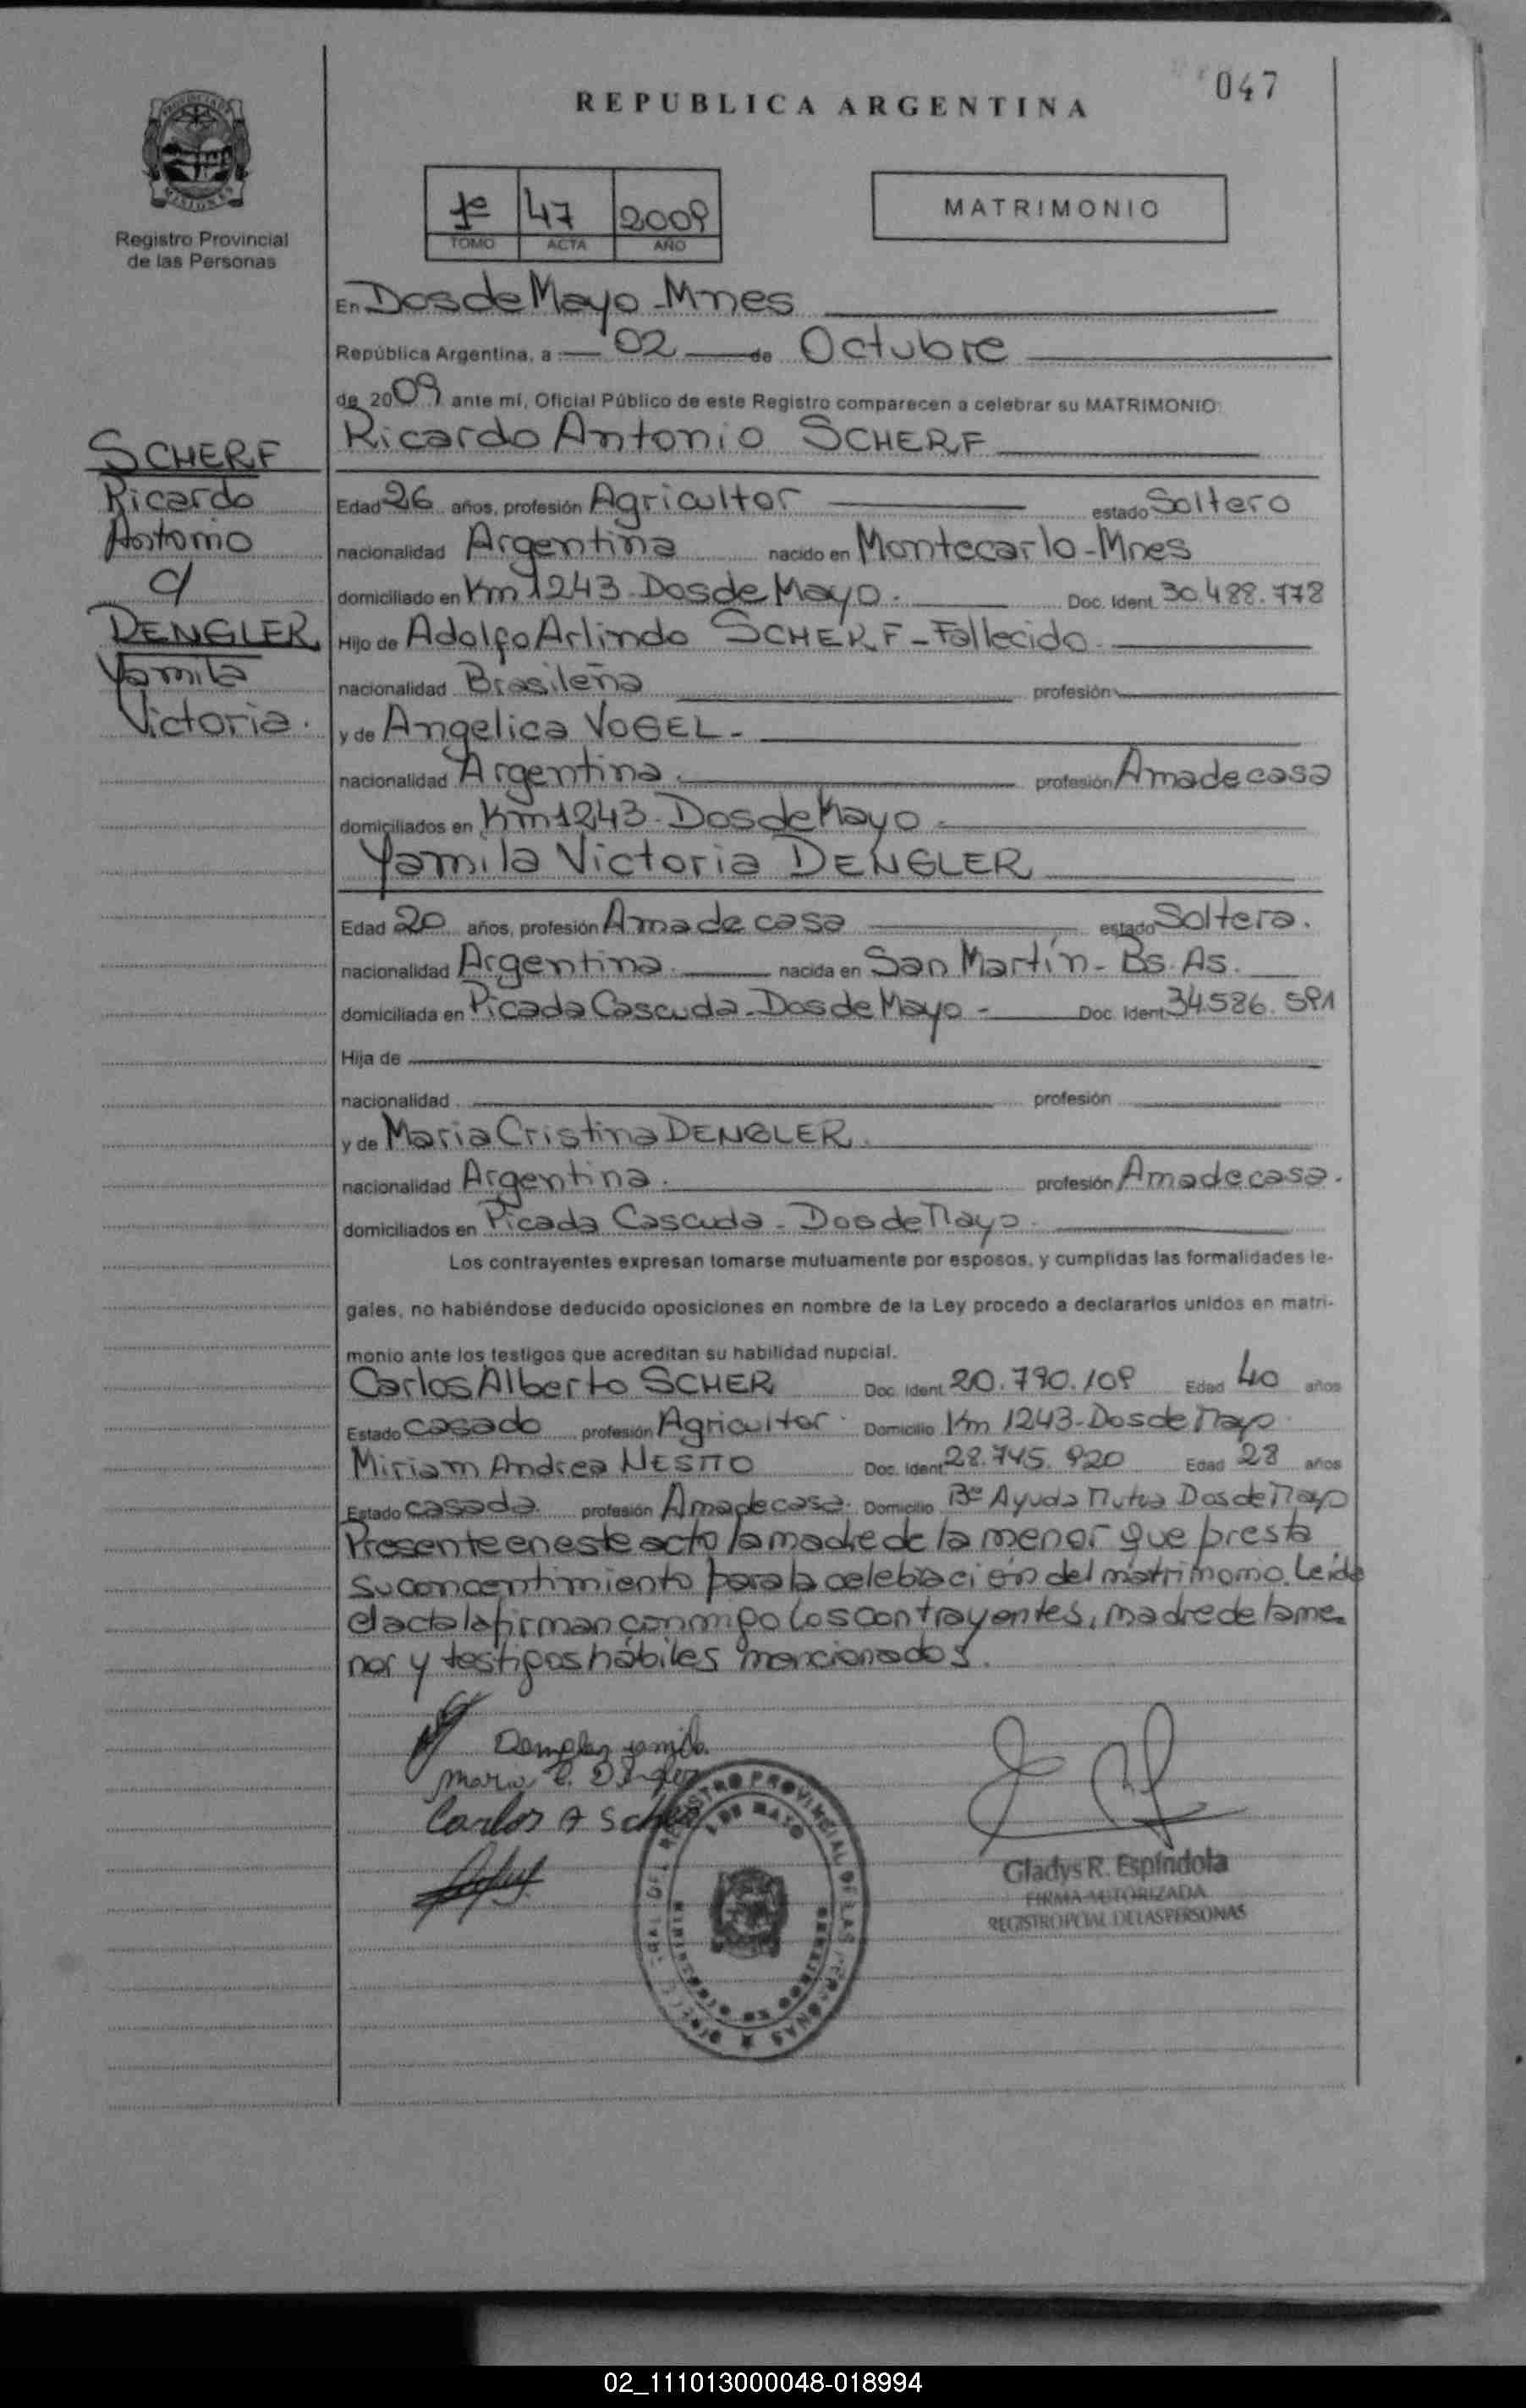 047
REPUBLICA ARGENTINA
1º 47 2009
TOMO ACTA AÑO
MATRIMONIO
Registro Provincial
de las Personas
En Dos de Mayo - Mnes
República Argentina, a 02 de Octubre
de 2009 ante mí, Oficial Público de este Registro comparecen a celebrar su MATRIMONIO:
Ricardo Antonio SCHERF
SCHERF
Ricardo
Antonio
c/
DENGLER
Yamila
Victoria.
Edad 26 años, profesión Agricultor estado Soltero
nacionalidad Argentina nacido en Montecarlo - Mnes
domiciliado en Km 1243 - Dos de Mayo. Doc. Ident. 30.488.778
Hijo de Adolfo Arlindo SCHERF - Fallecido
nacionalidad Brasileña profesión
y de Angelica VOGEL -
nacionalidad Argentina. profesión Ama de casa
domiciliados en Km 1243 - Dos de Mayo -
Yamila Victoria DENGLER
Edad 20 años, profesión Ama de casa estado Soltera.
nacionalidad Argentina. nacida en San Martín - Bs. As.
domiciliada en Picada Cascuda - Dos de Mayo - Doc. Ident. 34.586.591
Hija de
nacionalidad profesión
y de Maria Cristina DENGLER.
nacionalidad Argentina. profesión Ama de casa.
domiciliados en Picada Cascuda - Dos de Mayo.
Los contrayentes expresan tomarse mutuamente por esposos, y cumplidas las formalidades le-
gales, no habiéndose deducido oposiciones en nombre de la Ley procedo a declararlos unidos en matri-
monio ante los testigos que acreditan su habilidad nupcial.
Carlos Alberto SCHER Doc. Ident. 20.790.109 Edad 40 años
Estado casado profesión Agricultor. Domicilio Km 1243 - Dos de Mayo.
Miriam Andrea Doc. Ident. 28.745.920 Edad 28 años
Estado casada. profesión Ama de casa. Domicilio Bº Ayuda Mutua Dos de Mayo
Presente en este acto la madre de la menor que presta
su concentimiento para la celebración del matrimonio. Leída
el acta la firman conmigo los contrayentes, madre de la me-
nor y testigos hábiles mencionados.
Maria C. Dengler
Carlos A Scher
Gladys R. Espíndola
FIRMA AUTORIZADA
REGISTRO PCIAL DE LAS PERSONAS
02_111013000048-018994